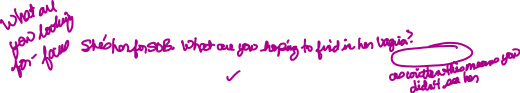 What are
you looking
for - faces
She's here for SOB. What are you hoping to find in her vagina?
as written this means you
didn't see her